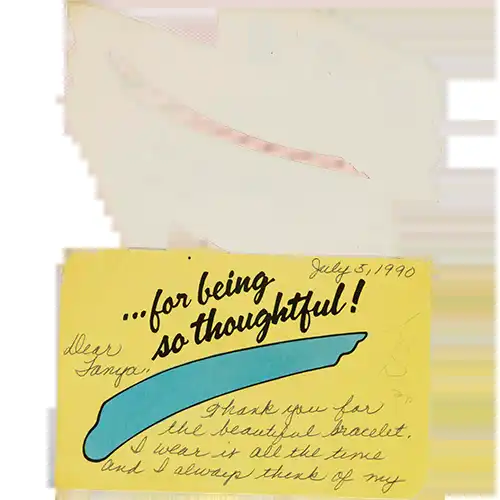 July 5, 1990
...for being
so thoughtful!
Dear
Tanya,
Thank you for
the beautiful bracelet.
I wear it all the time
and I always think of my